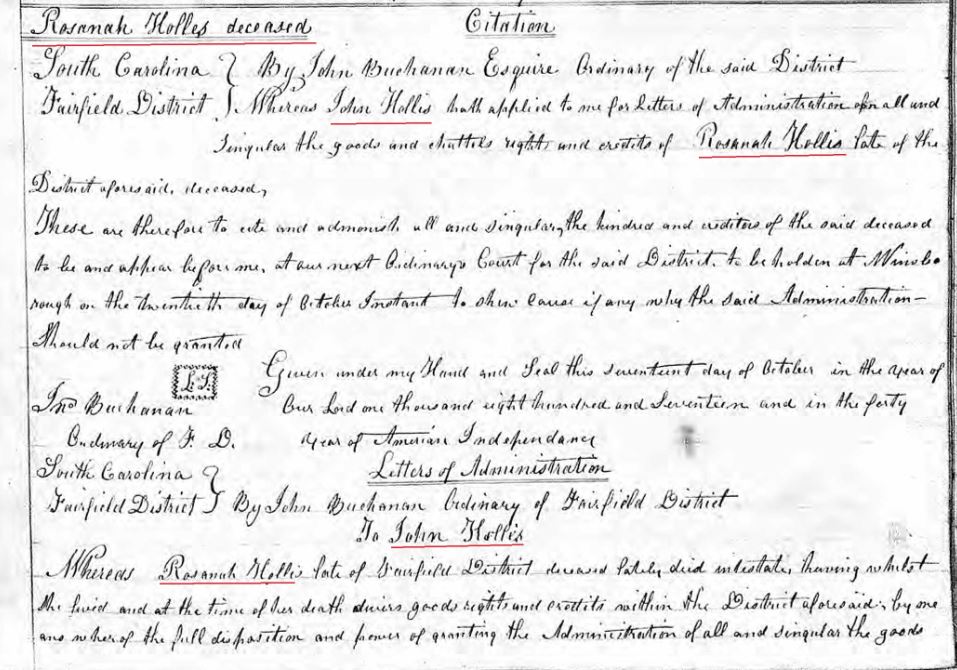 Rosanah Holles deceased Citation
South Carolina } By John Buchanan Esquire Ordinary of the said District
Fairfield District } Whereas John Hollis hath applied to me for letters of Administration on all and
Singular the goods and chattels rights and credits of Rosanah Hollis late of the
District aforesaid, deceased,
These are therefore to cite and admonish all and singular, the kindred and creditors of the said deceased
to be and appear before me, at our next Ordinary's Court for the said District, to be holden at Winsbo
rough on the twentieth day of October Instant to shew cause if any why the said Administration
Should not be granted
L.S. Given under my Hand and Seal this seventeent day of October in the year of
Jno Buchanan Our Lord one thousand eight hundred and Seventeen and in the forty
Ordinary of F. D. year of American Independancy
South Carolina } Letters of Administration
Fairfield District } By John Buchanan Ordinary of Fairfield District
To John Hollis
Whereas Rosanah Hollis late of Fairfield District deceased lately died intestate, having whilst
she lived and at the time of her death divers goods rights and credits within the District aforesaid, by
the full disposition and power of granting the Administration of all and singular the goods